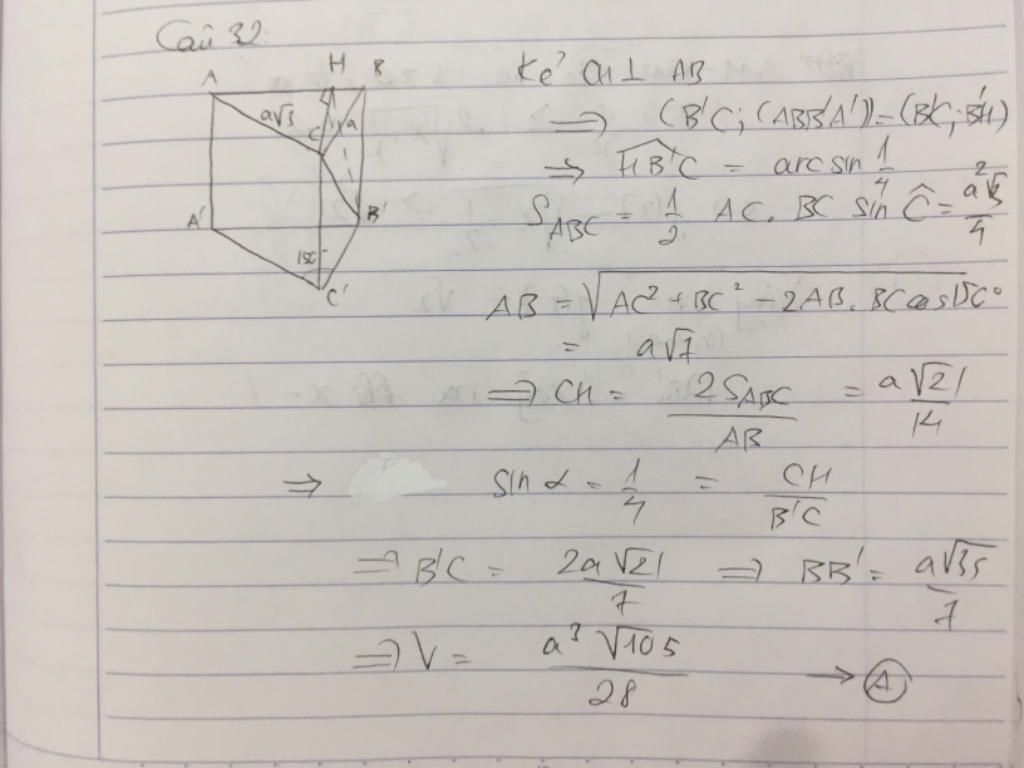 Câu 32:
A H B
a√3 C a
A' B'
150
C'
Kẻ CH ⊥ AB
⇒ (B'C; (ABB'A')) = (B'C; B'H)
⇒ HB'C = arc sin 1/4
S_ABC = 1/2 AC. BC sin Ĉ = a²√3/4
AB = √(AC² + BC² - 2AB. BC cos150°
= a√7
⇒ CH = 2S_ABC/AB = a√21/14
⇒ sin α = 1/4 = CH/B'C
⇒ B'C = 2a√21/7 ⇒ BB' = a√35/7
⇒ V = a³√105/28 → A